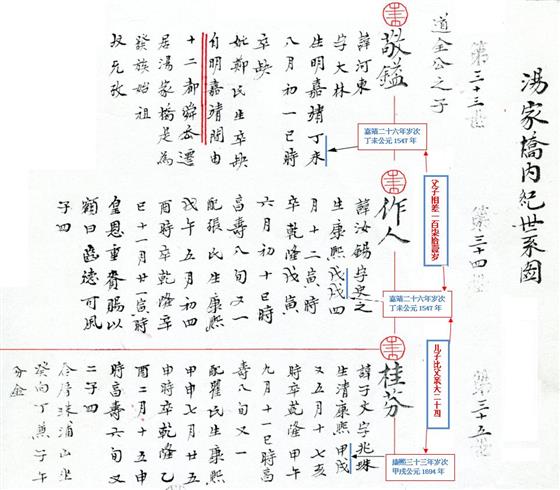 湯家橋内紀世系図
第三十三世
道金公之子
敬鎰
諱河東
字大林
生明嘉靖丁未
八月初一巳時
卒缺
妣鄭氏生卒缺
自明嘉靖間由
十二都舜岙遷
居湯家橋是為
發族始祖
嘉靖二十六年岁次
丁未公元1547年
父子相差一百柒拾壹岁
第三十四世
作人
諱汝錫字史之
生康熙戊戌四
月十二寅時
卒乾隆戊寅
六月初十巳時
高壽八旬又一
配張氏生康熙
戊午五月初四
酉時卒乾隆辛
巳十一月廿一寅時
皇恩重賚賜以
額曰齒德可風
子四
嘉靖二十六年岁次
丁未公元1547年
儿子比父亲大二十四
第三十五世
桂芬
諱子文字兆珠
生清康熙甲戌
又五月十七亥
時卒乾隆甲午
九月十一巳時高
壽八旬又一
配瞿氏生康熙
甲申七月廿五
申時卒乾隆乙
酉二月十五申
時高壽六旬又
二子四
合葬珠浦山坐
癸向丁兼子午
分金
康熙三十三年岁次
甲戌公元1894年